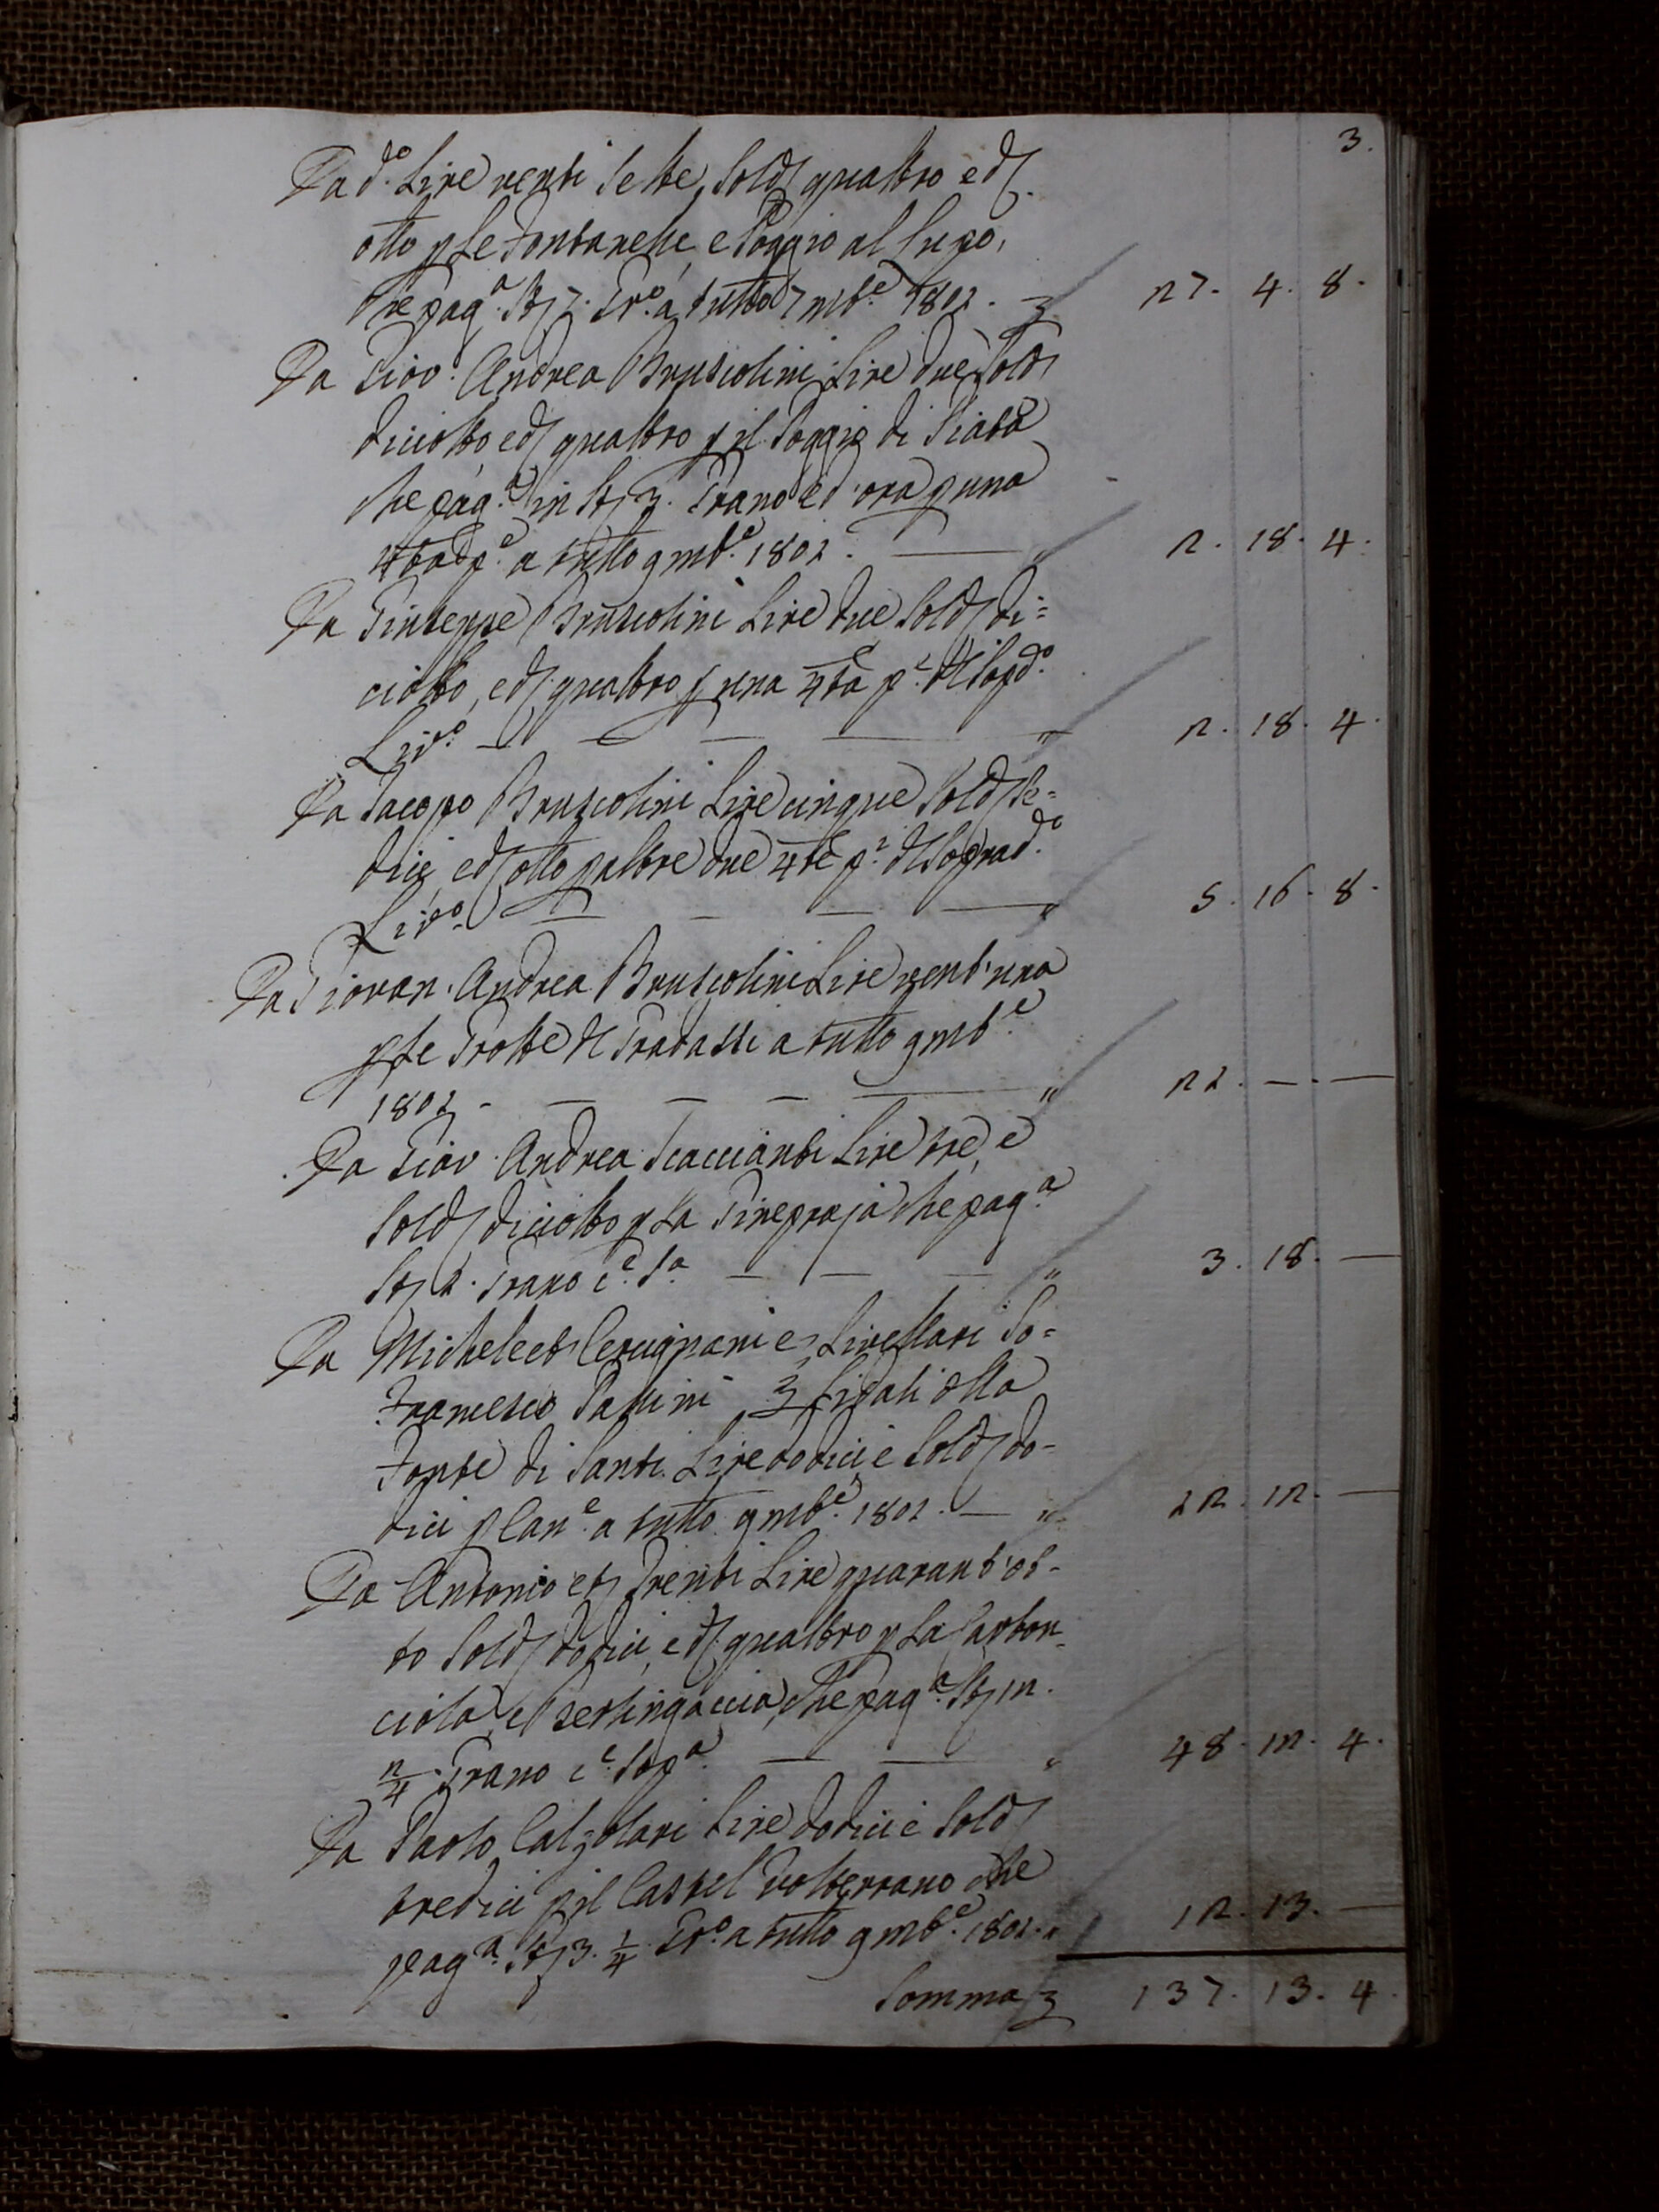 3.
Da d.º Lire venti sette, Sold quattro ed
otto p le Fontanelle, e Poggio al Lupo,
che pag.ª St 7. Gr.º a tutto 7mb.e 1802. 27. 4. 8.
Da Giov: Andrea Brusiolini Lire due Sold
diciotto, ed quattro p il Poggio di
che pag.ª in St 3. Grano ed ora p una
4ta p.e a tutto 9mb.e 1802. — " 2. 18. 4.
Da Giuseppe Brusiolini Lire due Sold di=
ciotto, ed quattro p una 4ta p.e del Sopd.º
Liv.º — — — — " 2. 18. 4.
Da Jacopo Brusiolini Lire cinque Sold Se=
dici, ed otto p altre due 4te p.e del Soprad.º
Liv.º — — — — " 5. 16. 8.
Da Giovan. Andrea Brusiolini Lire vent'una
p le Grotte a tutto 9mb.e
1802 - — — — — " 21. —. —
Da Giov. Andrea Scaccianti Lire tre, e
Sold diciotto p la che pag.ª
St 1. Grano c.e S.ª — — — " 3. 18. —
Da Michele et Cerugnani e Livellari So=
Francesco Passini Lidati della
Fonte di Santi. Lire dodici e Sold do=
dici p Can.e a tutto 9mb.e 1802. — " 12. 12. —
Da Antonio et Trenti Lire quarant'ot-
to Sold dodici, ed quattro p la Carbon-
ciola, e Berlingaccia, che pag.ª St 12.
2/4 Grano c.e Sop.ª — — " 48. 12. 4.
Da Paolo Calzolari Lire dodici e Sold
tredici p il Castel Volterrano che
pag.ª St 3. 1/4 Gr.º a tutto 9mb.e 1802. " 12. 13. —
Somma 137. 13. 4.